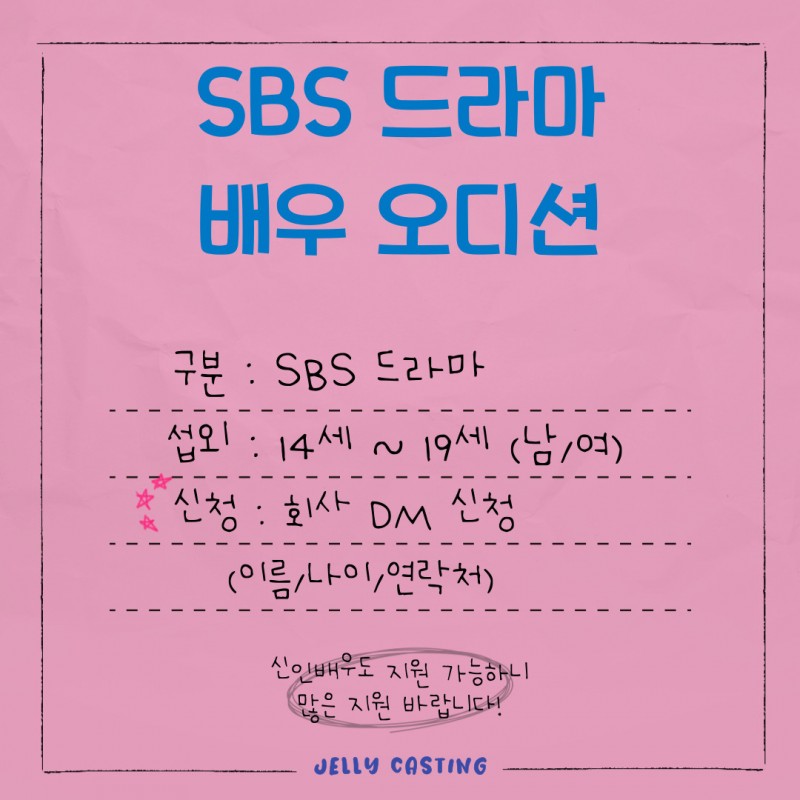 SBS 드라마
배우 오디션
구분 : SBS 드라마
섭외 : 14세 ~ 19세 (남/여)
신청 : 회사 DM 신청
(이름/나이/연락처)
신인배우도 지원 가능하니
많은 지원 바랍니다!
JELLY CASTING